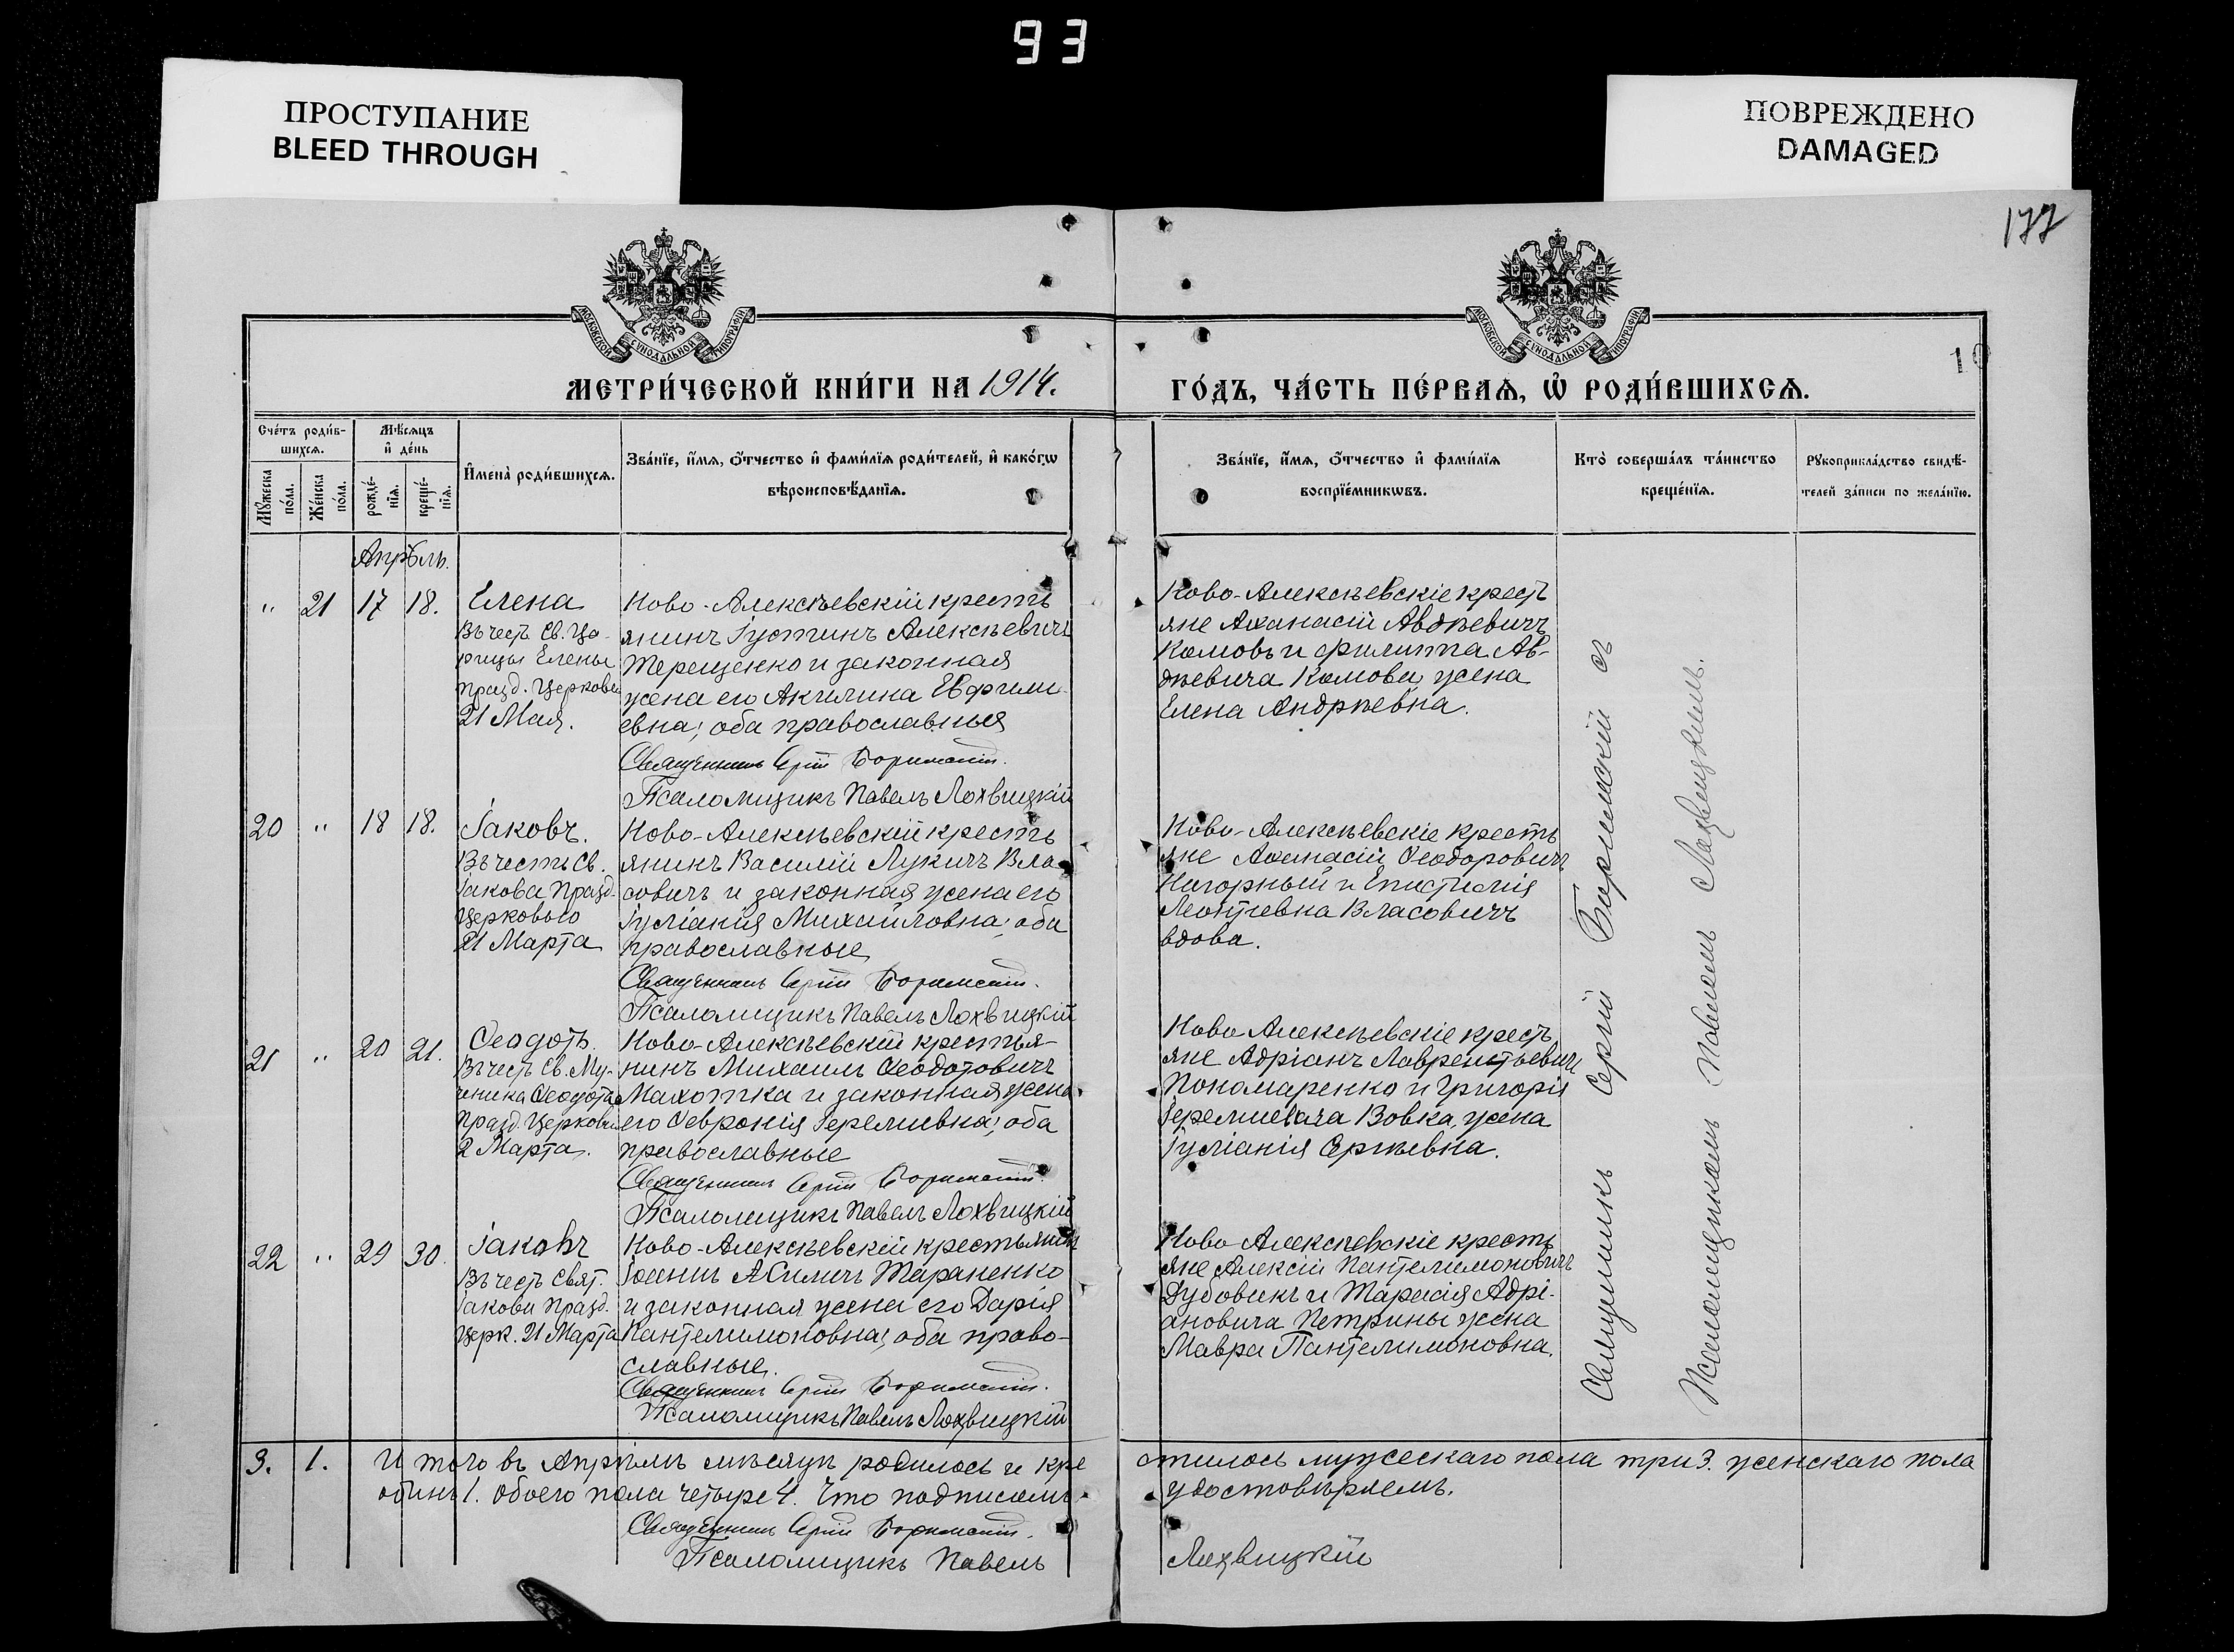 93
ПРОСТУПАНИЕ
BLEED THROUGH
ПОВРЕЖДЕНО
DAMAGED
177
МОСКОВСКОЙ СѴНОДАЛЬНОЙ ТИПОГРАФІИ
МОСКОВСКОЙ СѴНОДАЛЬНОЙ ТИПОГРАФІИ
10
МЕТРИ́ЧЕСКОЙ КНИ́ГИ НА 1914.
ГО́ДЪ, ЧА́СТЬ ПЕ́РВАѦ, Ѡ҆ РОДИ́ВШИХСѦ.
Сче́тъ роди́в-
шихсѧ.
Мꙋ́жеска
по́ла.
Же́нска
по́ла.
Мѣ́сѧцъ
и҆ де́нь
рожде́-
нїѧ.
креще́-
нїѧ.
И҆мена̀ роди́вшихсѧ.
Зва́нїе, и҆́мѧ, ѻ҆́тчество и҆ фами́лїѧ роди́телей, и҆ како́гѡ
вѣроисповѣ́данїѧ.
Зва́нїе, и҆́мѧ, ѻ҆́тчество и҆ фами́лїѧ
воспрїе́мникѡвъ.
Кто̀ соверша́лъ та́инство
креще́нїѧ.
Рꙋкоприкла́дство свидѣ́-
телей за́писи по жела́нїю.
Апрѣль.
" 21 17 18.
Елена
Въ честь Св. Ца-
рицы Елены
празд. Церковью
21 Мая.
Ново-Алексѣевскій кресть
янинъ Іустинъ Алексѣевичъ
Терещенко и законная
жена его Акилина Евфими-
евна; оба православные
Священникъ Сергій Боримскій.
Псаломщикъ Павелъ Лохвицкій
Ново-Алексѣевскіе кресть
яне Аѳанасій Авдѣевичъ
Комовъ и Филиппа Ав-
дѣевича Комова жена
Елена Андрѣевна.
20 " 18 18.
Іаковъ.
Въ честь Св.
Іакова Празд.
Церковью
21 Марта
Ново-Алексѣевскій кресть
янинъ Василій Лукичъ Вла-
совичъ и законная жена его
Іуліанія Михаиловна; оба
православные
Священникъ Сергій Боримскій.
Псаломщикъ Павелъ Лохвицкій
Ново-Алексѣевскіе кресть
яне Аѳанасій Ѳеодоровичъ
Нагорный и Епистимія
Леонтіевна Власовичъ
вдова.
21 " 20 21.
Ѳеодотъ.
Въ честь Св. Му-
ченика Ѳеодота
празд. Церковью
2 Марта.
Ново-Алексѣевскій крестья-
нинъ Михаилъ Ѳеодотовичъ
Махотка и законная жена
его Ѳевронія Іереміевна; оба
православные
Священникъ Сергій Боримскій.
Псаломщикъ Павелъ Лохвицкій
Ново Алексѣевскіе кресть
яне Адріанъ Лаврентьевичъ
Пономаренко и Григорія
Іереміевича Вовка жена
Іуліанія Сергѣевна.
22 " 29 30.
Іаковъ
Въ честь Свят.
Іакова празд.
Церк. 21 Марта
Ново-Алексѣевскій крестьянинъ
Іоаннъ Тараненко
и законная жена его Дарія
Пантелимоновна; оба право-
славные.
Священникъ Сергій Боримскій.
Псаломщикъ Павелъ Лохвицкій
Ново Алексѣевскіе кресть
яне Алексій Пантелимоновичъ
Дубовикъ и Тарасія Адрі-
ановича Петрины жена
Мавра Пантелимоновна.
Священникъ Сергій Боримскій съ
Псаломщикомъ Павломъ Лохвицкимъ.
3. 1. И того въ Апрѣлѣ мѣсяцѣ родилось и кре стилось мужескаго пола три 3. женскаго пола
одинъ 1. обоего пола четыре 4. Что подписомъ удостовѣряемъ.
Священникъ Сергій Боримскій.
Псаломщикъ Павелъ Лохвицкій